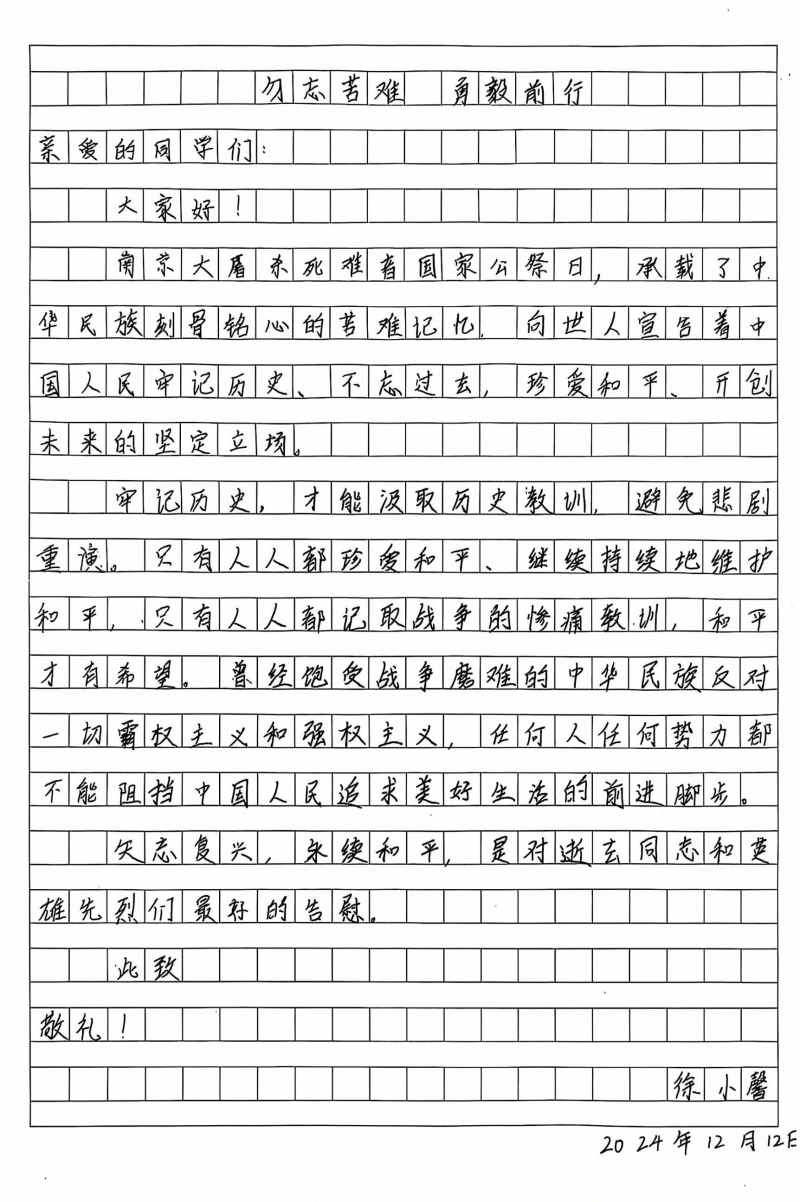 勿忘苦难 勇毅前行
亲爱的同学们:
大家好!
南京大屠杀死难者国家公祭日,承载了中
华民族刻骨铭心的苦难记忆.向世人宣告着中
国人民牢记历史、不忘过去,珍爱和平、开创
未来的坚定立场。
牢记历史,才能汲取历史教训,避免悲剧
重演。只有人人都珍爱和平、继续持续地维护
和平,只有人人都记取战争的惨痛教训,和平
才有希望。曾经饱受战争磨难的中华民族反对
一切霸权主义和强权主义,任何人任何势力都
不能阻挡中国人民追求美好生活的前进脚步。
矢志复兴,永续和平,是对逝去同志和英
雄先烈们最好的告慰。
此致
敬礼!
徐小馨
2024年12月12日